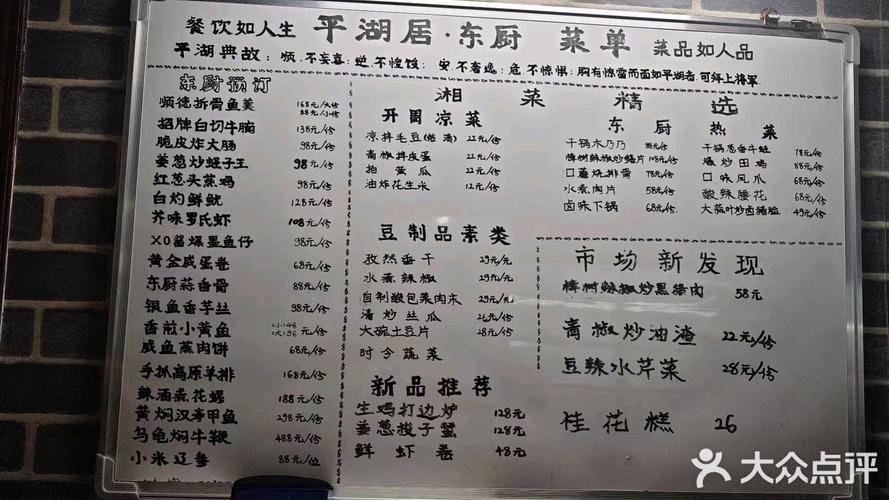 餐饮如人生 平湖居·东厨 菜单 菜品如人品
平湖典故:顺.不妄喜;逆.不惶馁;安.不奢逸;危.不惊惧;胸有惊雷而面如平湖者.可拜上将军
东厨预订
顺德拆骨鱼羹 168元/大份 88元/小份
招牌白切牛腩 138元/份
脆皮炸大肠 98元/份
姜葱炒蛏子王 98元/份
红葱头蒸鸡 98元/份
白灼鲜鱿 128元/份
芥味罗氏虾 108元/份
XO酱爆墨鱼仔 98元/份
黄金咸蛋卷 68元/份
东厨蒜香骨 88元/份
银鱼香芋丝 98元/份
香煎小黄鱼 (小)48 (大)96元/份
咸鱼蒸肉饼 68元/份
手抓高原羊排 168元/份
辣酒煮花螺 188元/份
黄焖汉寿甲鱼 298元/份
乌龟焖牛鞭 488元/份
小米辽参 88元/位
湘菜精选
开胃凉菜
凉拌毛豆 22元/份
青椒拌皮蛋 22元/份
拍黄瓜 22元/份
油炸花生米 12元/份
豆制品素类
孜然香干 29元/元
水煮辣椒 29元/元
自制酸包菜肉末 29元/元
清炒丝瓜 26元/份
大碗土豆片 28元/份
时令蔬菜
新品推荐
生鸡打边炉 128元
姜葱梭子蟹 128元
鲜虾卷 48元
东厨热菜
干锅木乃乃
樟树辣椒炒鳝片
口蘑烧排骨 78元/份
水煮肉片 58元/份
卤味下锅 68元/份
干锅葱香牛蛙 78元/份
爆炒田鸡 88元/份
口味凤爪 68元/份
酸辣腰花 68元/份
大蒜叶炒卤猪脸 49元/份
市场新发现
樟树辣椒炒黑猪肉 58元
青椒炒油渣 22元/份
豆辣水芹菜 28元/份
桂花糕 26
大众点评